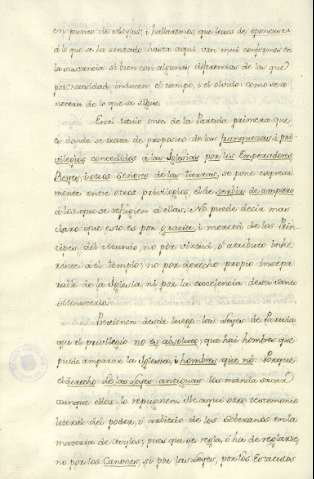 en punto de asylos, i hallaremos, que lexos de oponerse
á lo que se ha sentado hasta aqui van mui conformes en
la sustancia si bien con algunas diferencias de las que
por necesidad inducen el tiempo, i el olvido: como vere
mos en lo que se sigue.
En el titulo once de la Partida primera que
es donde se trata de proposito de las franquezas i pri
vilegios concedidos a las Iglesias por los Emperadores
Reyes, i otros Señores de las tierras, se pone expresa
mente entre otros privilegios, el de servir de amparo
à los que se refugien à ellas. No puede decir mas
claro que esto es por gracia i merced de los Prin
cipes del mundo, no por virtud, ò atributo inhe
rente à el templo; no por derecho propio insepa
rable de la Iglesia, ni por la
Previenen desde luego las Leyes de Partida
que el privilegio no es absoluto, que hai hombres que
puede amparar la Iglesia, i hombres que no. Porque
el derecho de las Leyes antiguas los manda sacar
aunque ellos lo repugnen. He aqui otro testimonio
literal del poder, ò arbitrio de los Soberanos en la
materia de asylos; pues que se regla, ò ha de reglarse,
no por los Canones, si por las Leyes, por los Estatutos